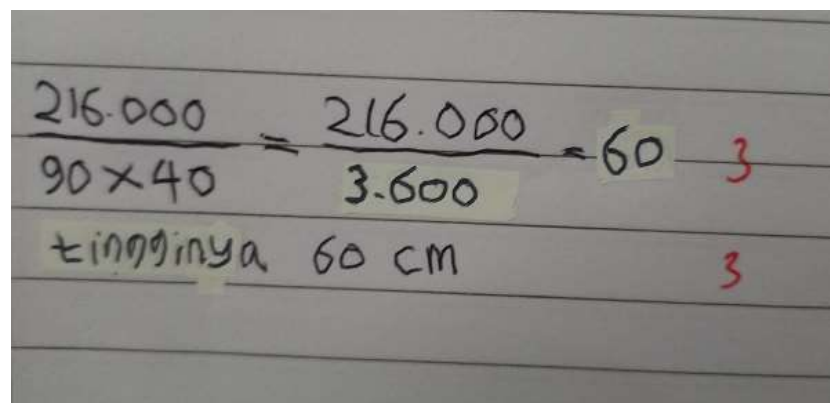 216.000 / 90 × 40 = 216.000 / 3.600 = 60 3
tingginya 60 cm 3